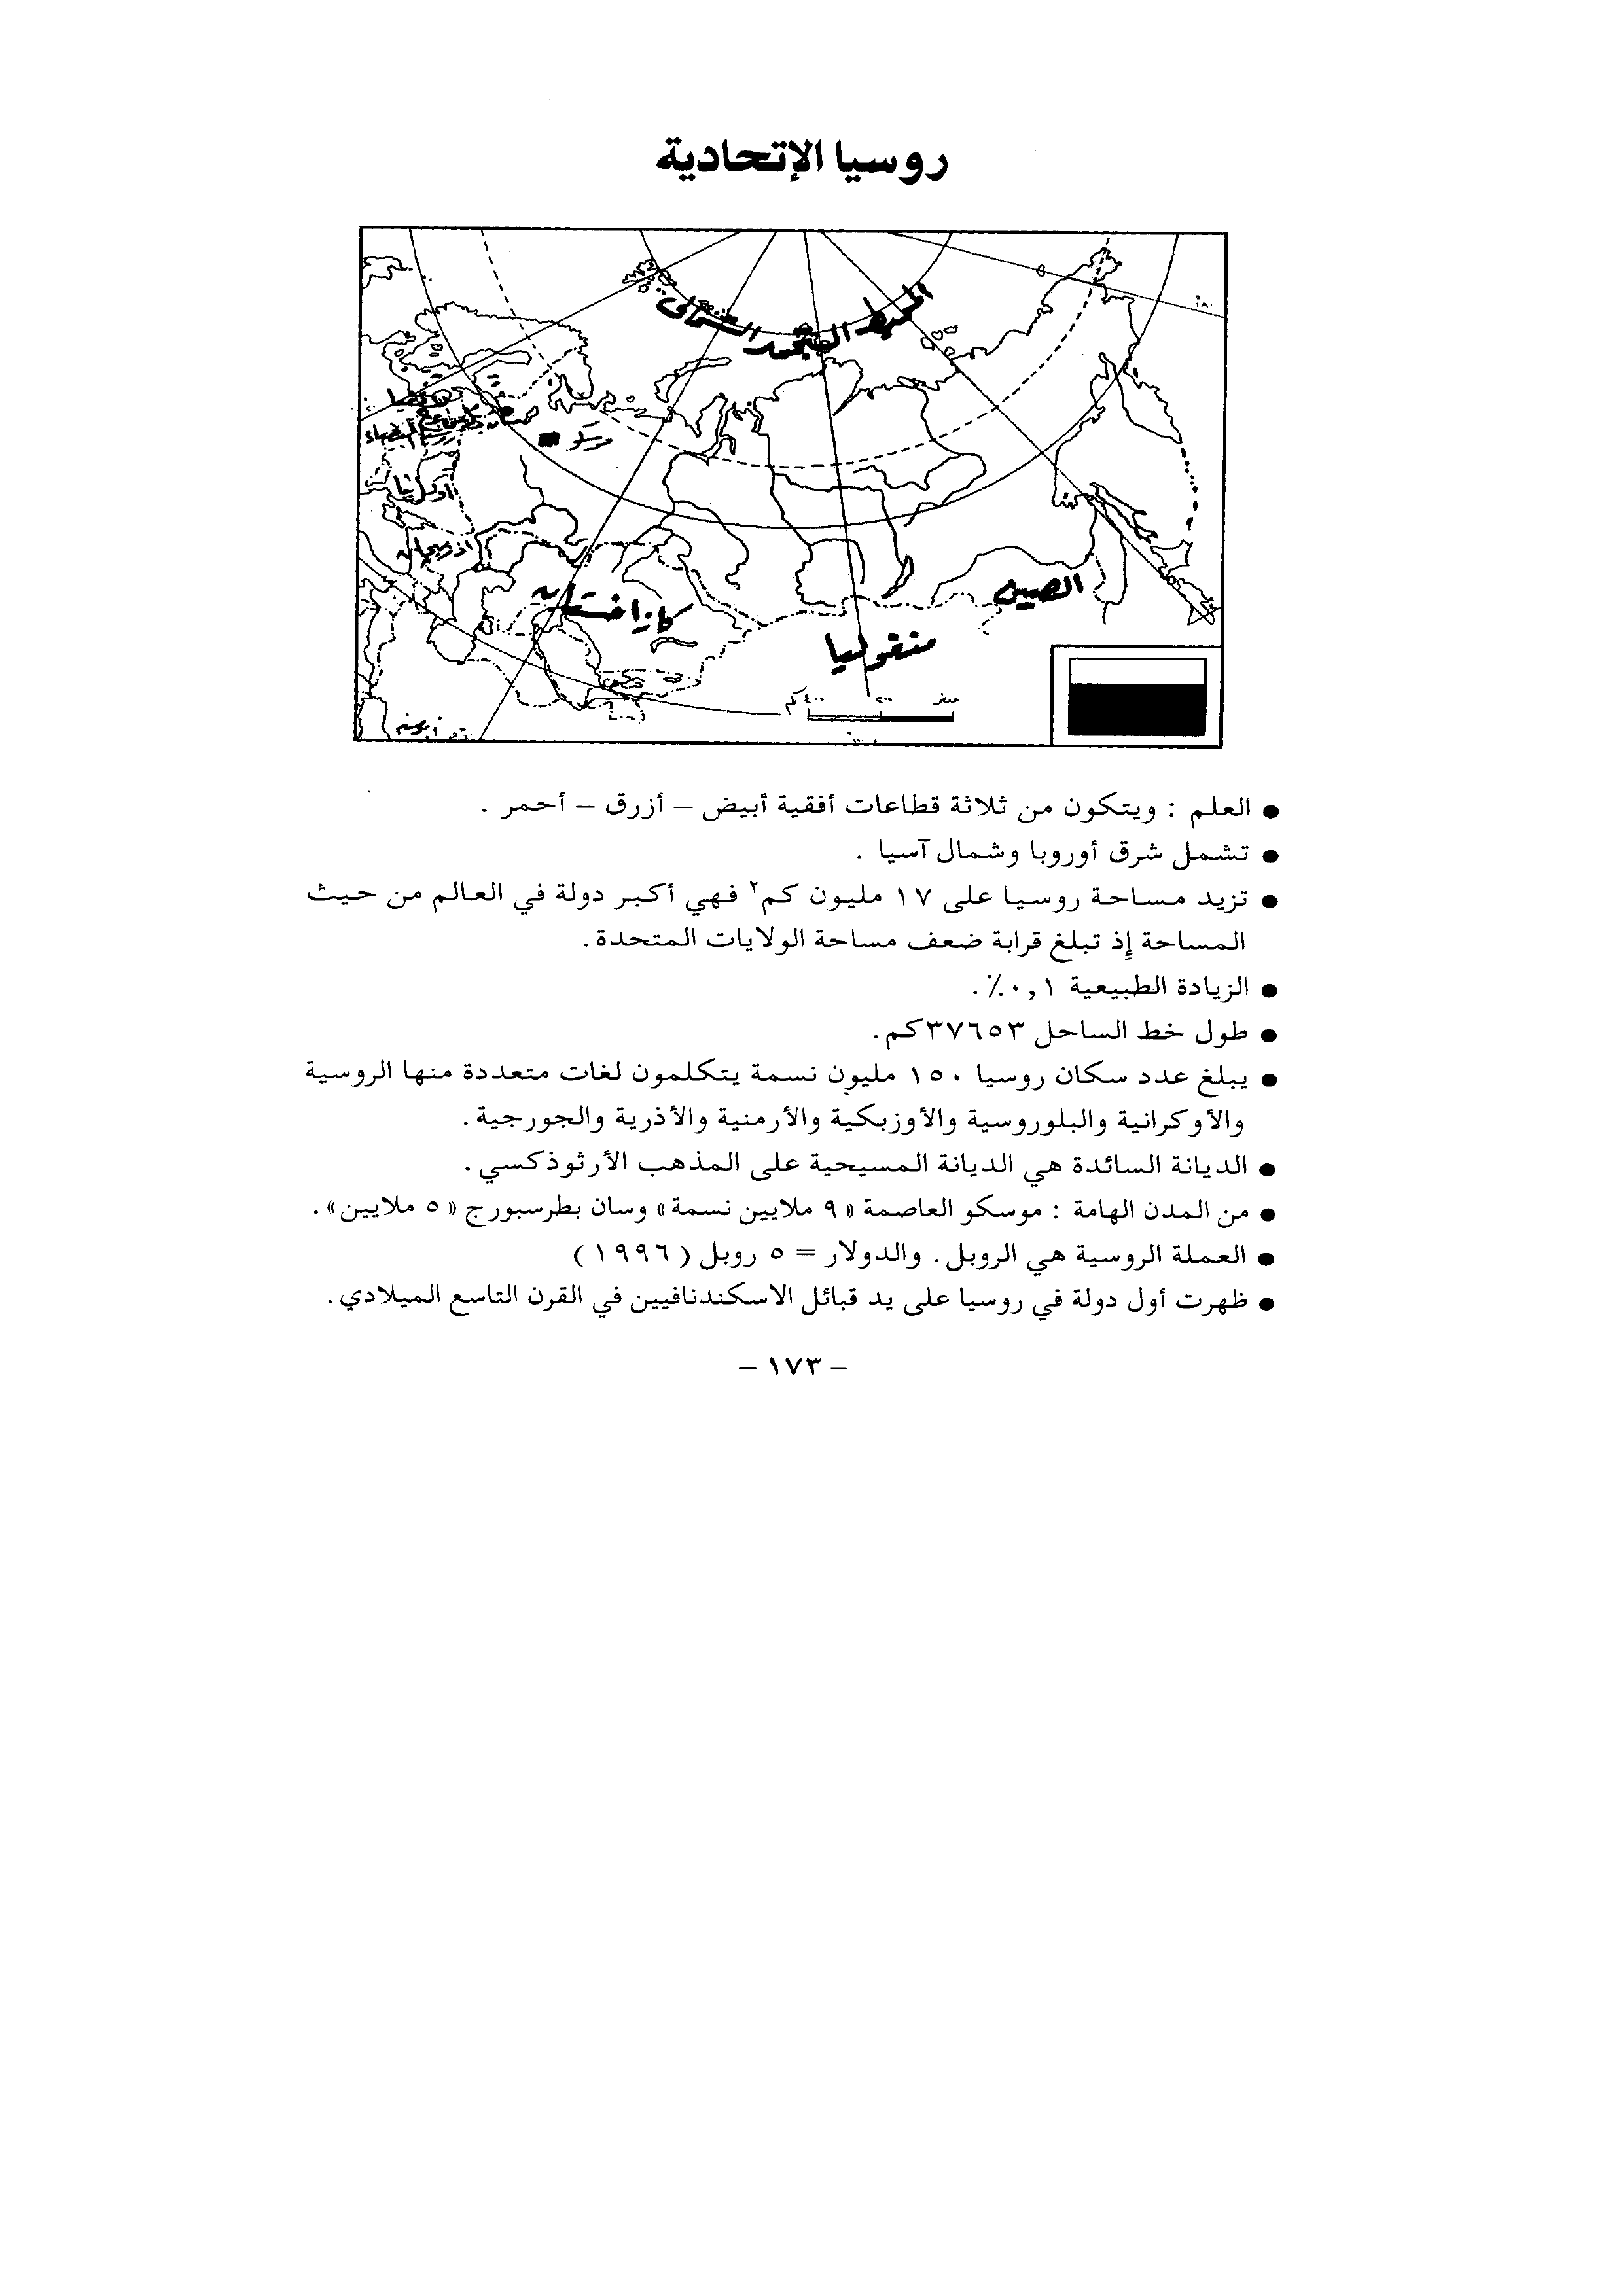 روسيا الإتحادية
المحيط المتجمد الشمالي
موسكو
أوكرانيا
اذربيجان
كازاخستان
الصين
منغوليا
صفر ٢٠٠ ٤٠٠ كم
● العلم : ويتكون من ثلاثة قطاعات أفقية أبيض – أزرق – أحمر .
● تشمل شرق أوروبا وشمال آسيا .
● تزيد مساحة روسيا على ١٧ مليون كم٢ فهي أكبر دولة في العالم من حيث
المساحة إذ تبلغ قرابة ضعف مساحة الولايات المتحدة .
● الزيادة الطبيعية ٠,١٪ .
● طول خط الساحل ٣٧٦٥٣كم .
● يبلغ عدد سكان روسيا ١٥٠ مليون نسمة يتكلمون لغات متعددة منها الروسية
والأوكرانية والبلوروسية والأوزبكية والأرمنية والأذرية والجورجية .
● الديانة السائدة هي الديانة المسيحية على المذهب الأرثوذكسي .
● من المدن الهامة : موسكو العاصمة « ٩ ملايين نسمة» وسان بطرسبورج « ٥ ملايين» .
● العملة الروسية هي الروبل . والدولار = ٥ روبل ( ١٩٩٦ )
● ظهرت أول دولة في روسيا على يد قبائل الاسكندنافيين في القرن التاسع الميلادي .
– ١٧٣ –